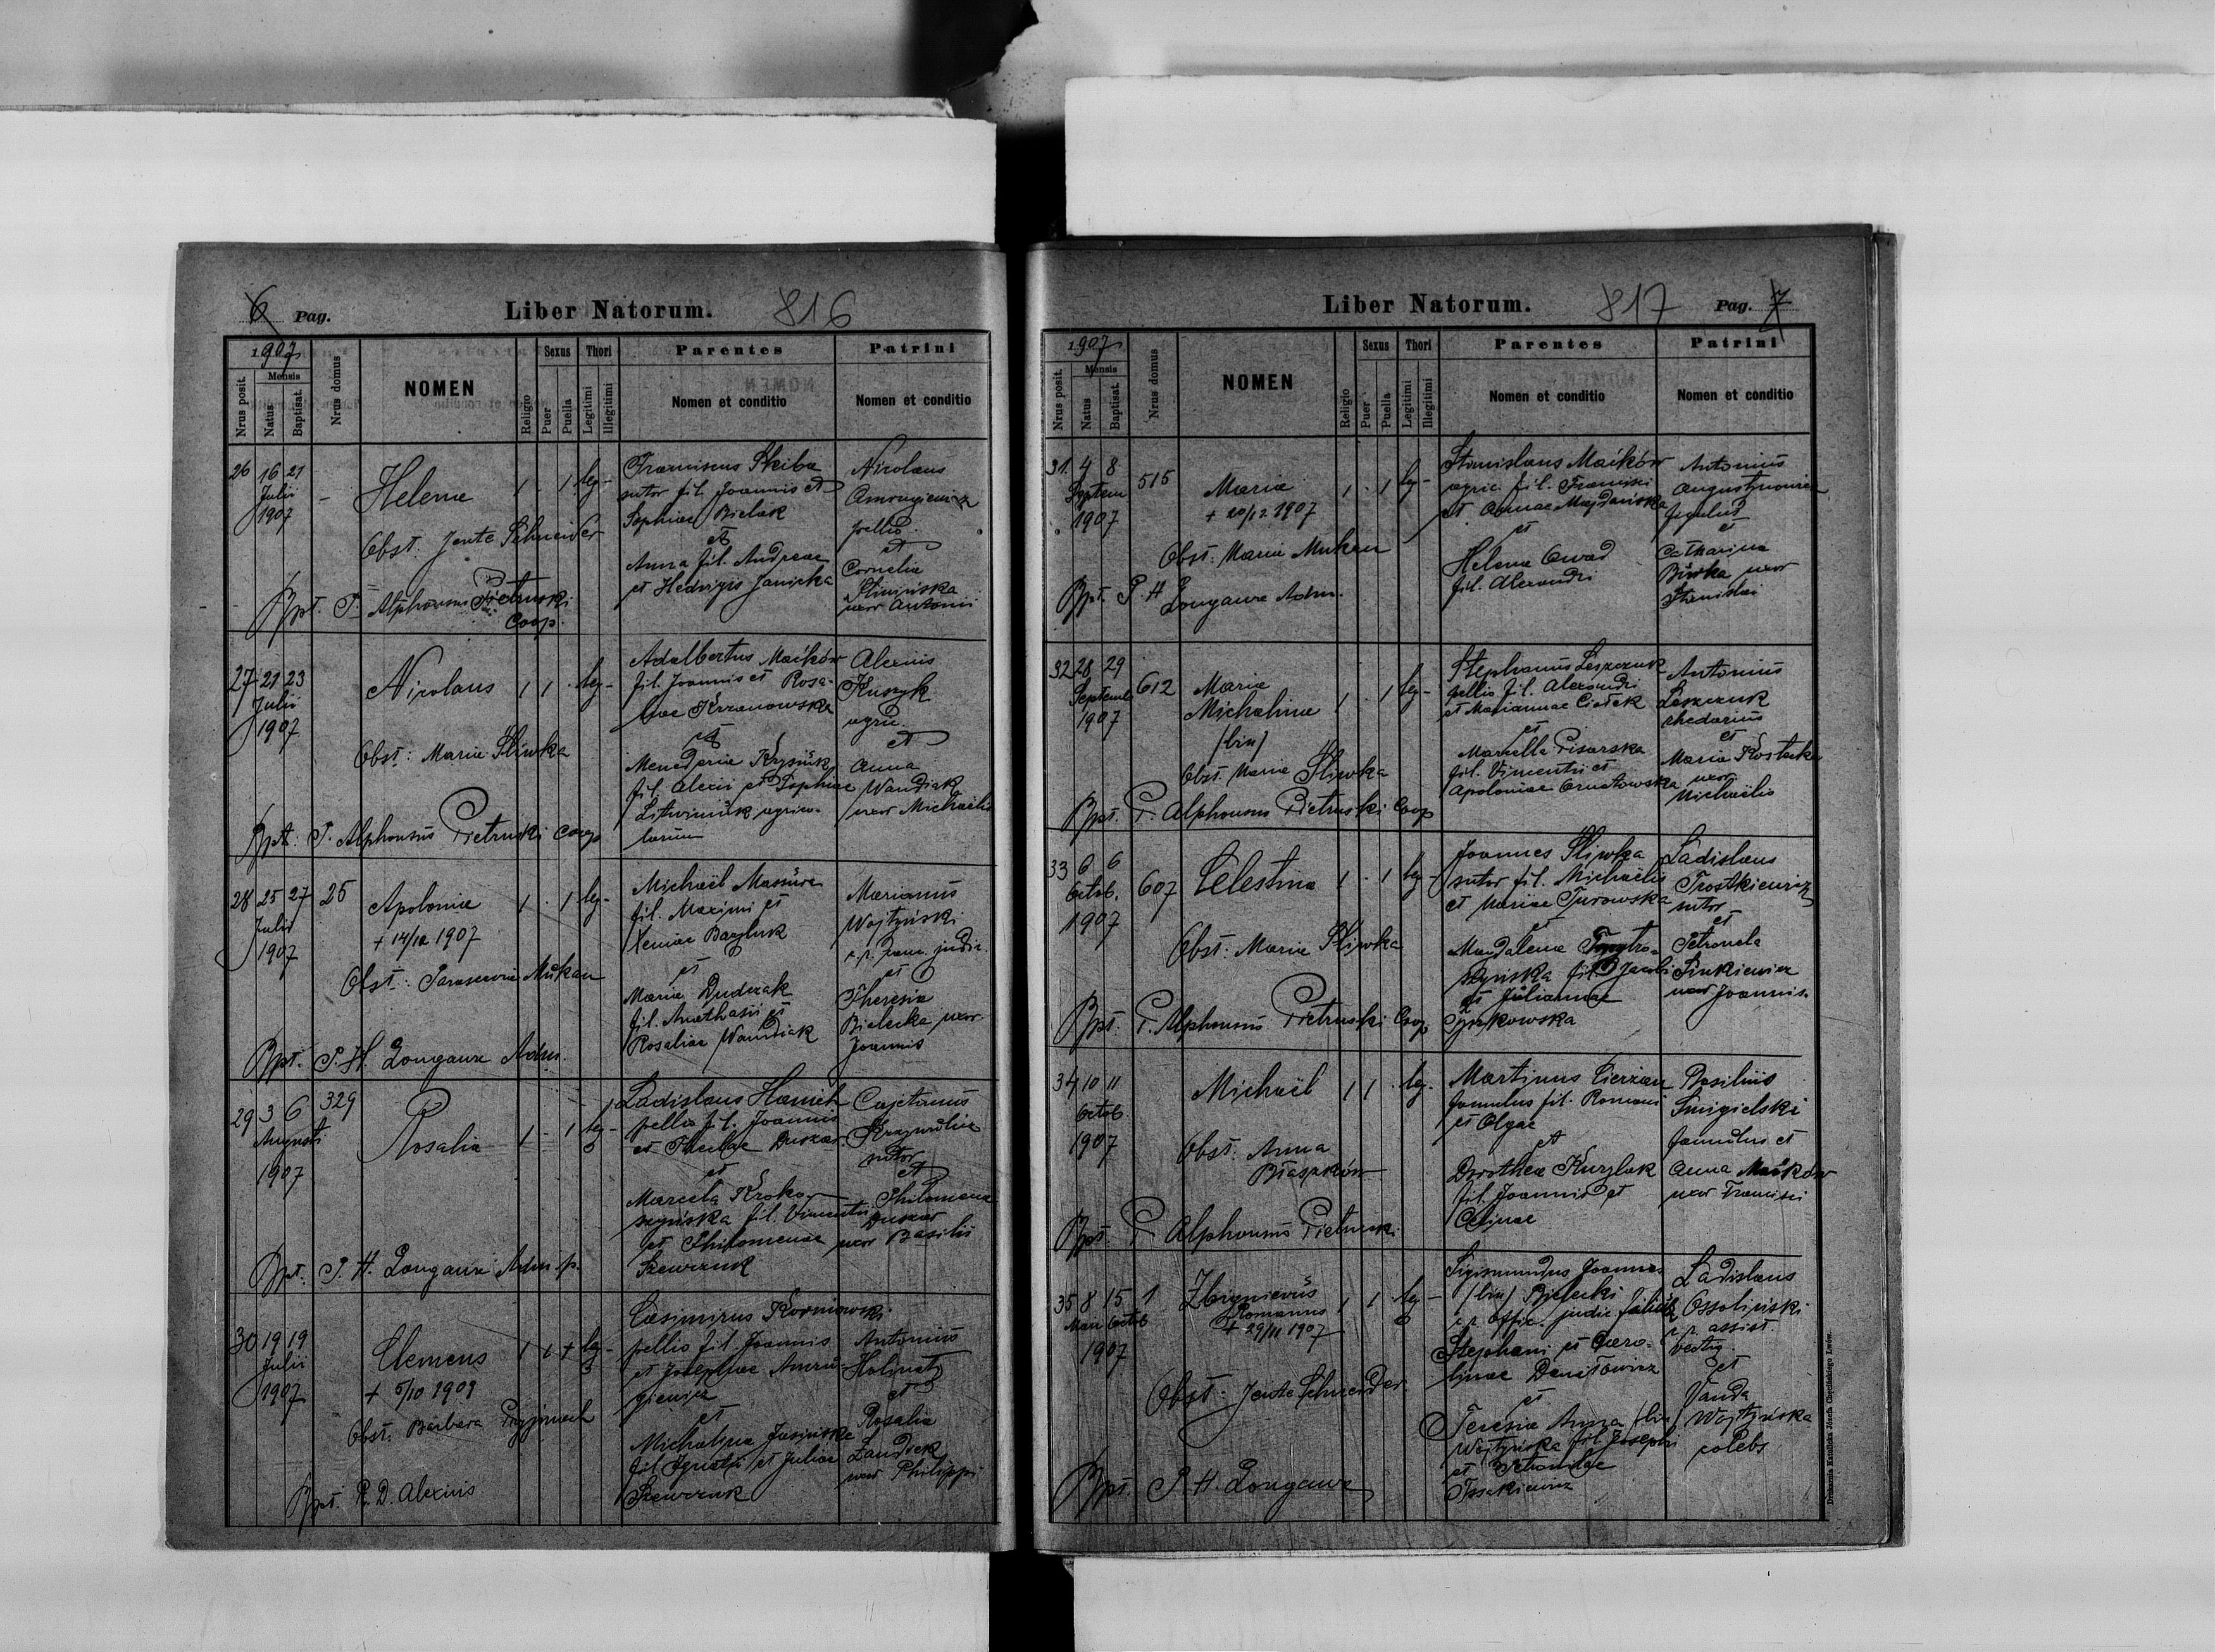 6 Pag. Liber Natorum. 816
1907
Nrus posit.
Mensis
Natus
Baptisat.
Nrus domus
NOMEN
Religio
Sexus
Puer
Puella
Thori
Legitimi
Illegitimi
Parentes
Nomen et conditio
Patrini
Nomen et conditio
26 16 21 - Helena 1 . 1 leg-
Julii
1907
Obst. Jente Schneider
Bpt. P. Alphonsus Pietruski
Coop.
Franciscus Skiba
sutor fil. Joannis et
Sophiae Bielak
et
Anna fil. Andreae
et Hedvigis Janicka
Nicolaus
pellio
et
Cornelia
uxor Antonii
27 21 23 Nicolaus 1 1 . leg-
Julii
1907
Obst: Maria Sliwka
Bpt: P. Alphonsus Pietruski Coop
Adalbertus Maików
fil. Joannis et Rosa-
liae Krzanowska
et
fil. Alexii et Sophiae
agrico-
larum
Alexius
Kuszyk
agric.
et
Anna
Wandiak
uxor Michaelis
28 25 27 25 Apolonia 1 . 1 leg-
Julii
1907
+ 14/12 1907
Obst: Parascevia Mukan
Bpt. P. H. Longawa Adm.
Michaël Massura
fil. Maximi et
Xeniae Bazyluk
et
Maria Dudczak
fil. Anathasii et
Rosaliae Wandiak
Marianus
Wojtyński
et
Theresia
Bielecka uxor
Joannis
29 3 6 329 Rosalia 1 - 1 leg-
Augusti
1907
Bpt. P. H. Longawa Adm. p.
Ladislaus Hanich
pellio fil. Joannis
et Theclae Duszar
et
Marcela Kroko-
szyńska fil. Vincentii
et Philomenae
Szewczuk
Cajetanus
sutor
et
Philomena
Duszar
uxor Basilii
30 19 19 Clemens
Julii
1907
+ 5/10 1909
Obst. Barbara
Bpt. R. D. Alexius
Casimirus Korniowski
pellio fil. Joannis
et Josephae Amru-
giewicz
et
Michalina Jasińska
fil. Ignatii et Juliae
Szewczuk
Antonius
Holinaty
et
Rosalia
uxor Philippi
Liber Natorum. 817 Pag. 7
1907
Nrus posit.
Mensis
Natus
Baptisat.
Nrus domus
NOMEN
Religio
Sexus
Puer
Puella
Thori
Legitimi
Illegitimi
Parentes
Nomen et conditio
Patrini
Nomen et conditio
31. 4 8 515 Maria 1 . 1 leg-
Septem
1907
+ 20/12 1907
Obst: Maria Mukan
Bpt. P. H. Longawa Adm.
Stanislaus Maików
agric. fil. Francisci
et Annae Majdańska
et
Helena Owad
fil. Alexandri
Antonius
figulus
et
Catharina
uxor
Stanislai
32 28 29 612 Maria 1 . 1 leg-
Septemb
1907
Michalina
(bin)
Obst. Maria Sliwka
Bpt. P. Alphonsus Pietruski Coop
Stephanus Leszczuk
pellio fil. Alexandri
et Mariannae Ciołek
et
Marcella Pisarska
fil. Vincentii et
Apoloniae Ornatowska
Antonius
Leszczuk
rhedarius
et
Maria Kostecka
uxor
Michaëlis
33 6 6 607 Celestina 1 . 1 leg-
Octob.
1907
Obst: Maria Sliwka
Bpt. P. Alphonsus Pietruski Coop
Joannes Sliwka
sutor fil. Michaelis
et Mariae Turowska
et
Magdalena
fil. Jacobi
et Juliannae
Tyszkowska
Ladislaus
Trostkiewicz
sutor
et
Petronela
Sinkiewicz
uxor Joannis.
34 10 11 Michaël 1 1 . leg.
Octob
1907
Obst. Anna
Błaszków
Bpt. P. Alphonsus Pietruski
Martinus Cierzan
famulus fil. Romani
et Olgae
et
Dorothea Kurzluk
fil. Joannis et
Celinae
Basilius
Smigielski
famulus et
Anna Maików
uxor Francisci
35 8 15 1 Zbignievus 1 1 . leg-
Maii Octob
1907
Romanus
+ 29/11 1907
Obst: Jente Schneider
Bpt. P. H. Longawa
Sigismundus Joannes
(bin) Bielecki
c. r. offic. judic. filius
Stephani et Caro-
linae Daniłowicz
et
Teresia Anna (bin)
Wojtyńska fil. Josephi
et Petronelae
Issakiewicz
Ladislaus
Ossoliński
c. r. assist.
vectig.
et
Vanda
Wojtyńska
coelebs
Drukarnia Katolicka Józefa Chęcińskiego Lwów.